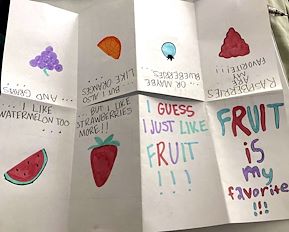 AND GRAPES
. . . .
BUT I ALSO
LIKE ORANGES
. . . .
OR MAYBE
BLUEBERRIES
. . . .
RASPBERRIES
ARE MY
FAVORITE!!!
... I LIKE
WATERMELON TOO
. . .
... BUT I LIKE
STRAWBERRIES
MORE!!
I GUESS
I JUST LIKE
FRUIT
!!!
FRUIT
is
my
favorite
!!!